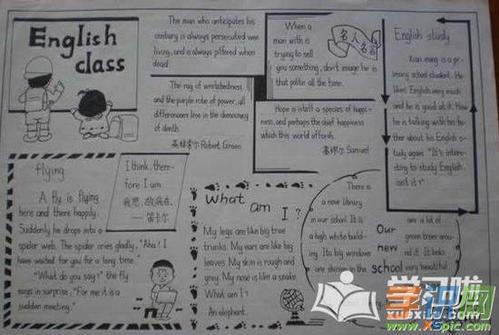 English
class
The man who anticipates his
century is always persecuted when
living, and is always pilfered when
dead.
The rag of wretchedness
and the purple robe of power, all
differences lose in the democracy
of death.
Robert Green
When a
man with is
trying to sell
you something, don't image he is
that polite all the time.
名人名言
Hope is itself a species of happi-
ness, and perhaps the chief happiness
which this world affords.
Samuel
English study
Xiao ming is a pri-
mary school student. He
likes English very much
and he is good at it. Now
he is talking with his fa-
ther about his English s-
tudy again. "It's interes-
ting to study English,
isn't it?"
flying
A fly is flying
here and there happily.
Suddenly he drops into a
spider web. The spider cries gladly, "Aha! I
have waited for you for a long time."
"What do you say?" the fly
says in surprise. "For me it is a
sudden meeting."
I think, there-
fore I am
我思, 故我在.
——笛卡尔
What am I?
My legs are like big tree
trunks. My ears are like big
leaves. My skin is rough and
grey. My nose is like a snake.
What am I?
An elephant.
Our
new
school
There is
a new library
in our school. It is
a high white build-
ing. Its big windows
are shining in the
are a lot of
green trees arou-
nd it. It looks
very beautiful
学习啦
www.XSpic.com